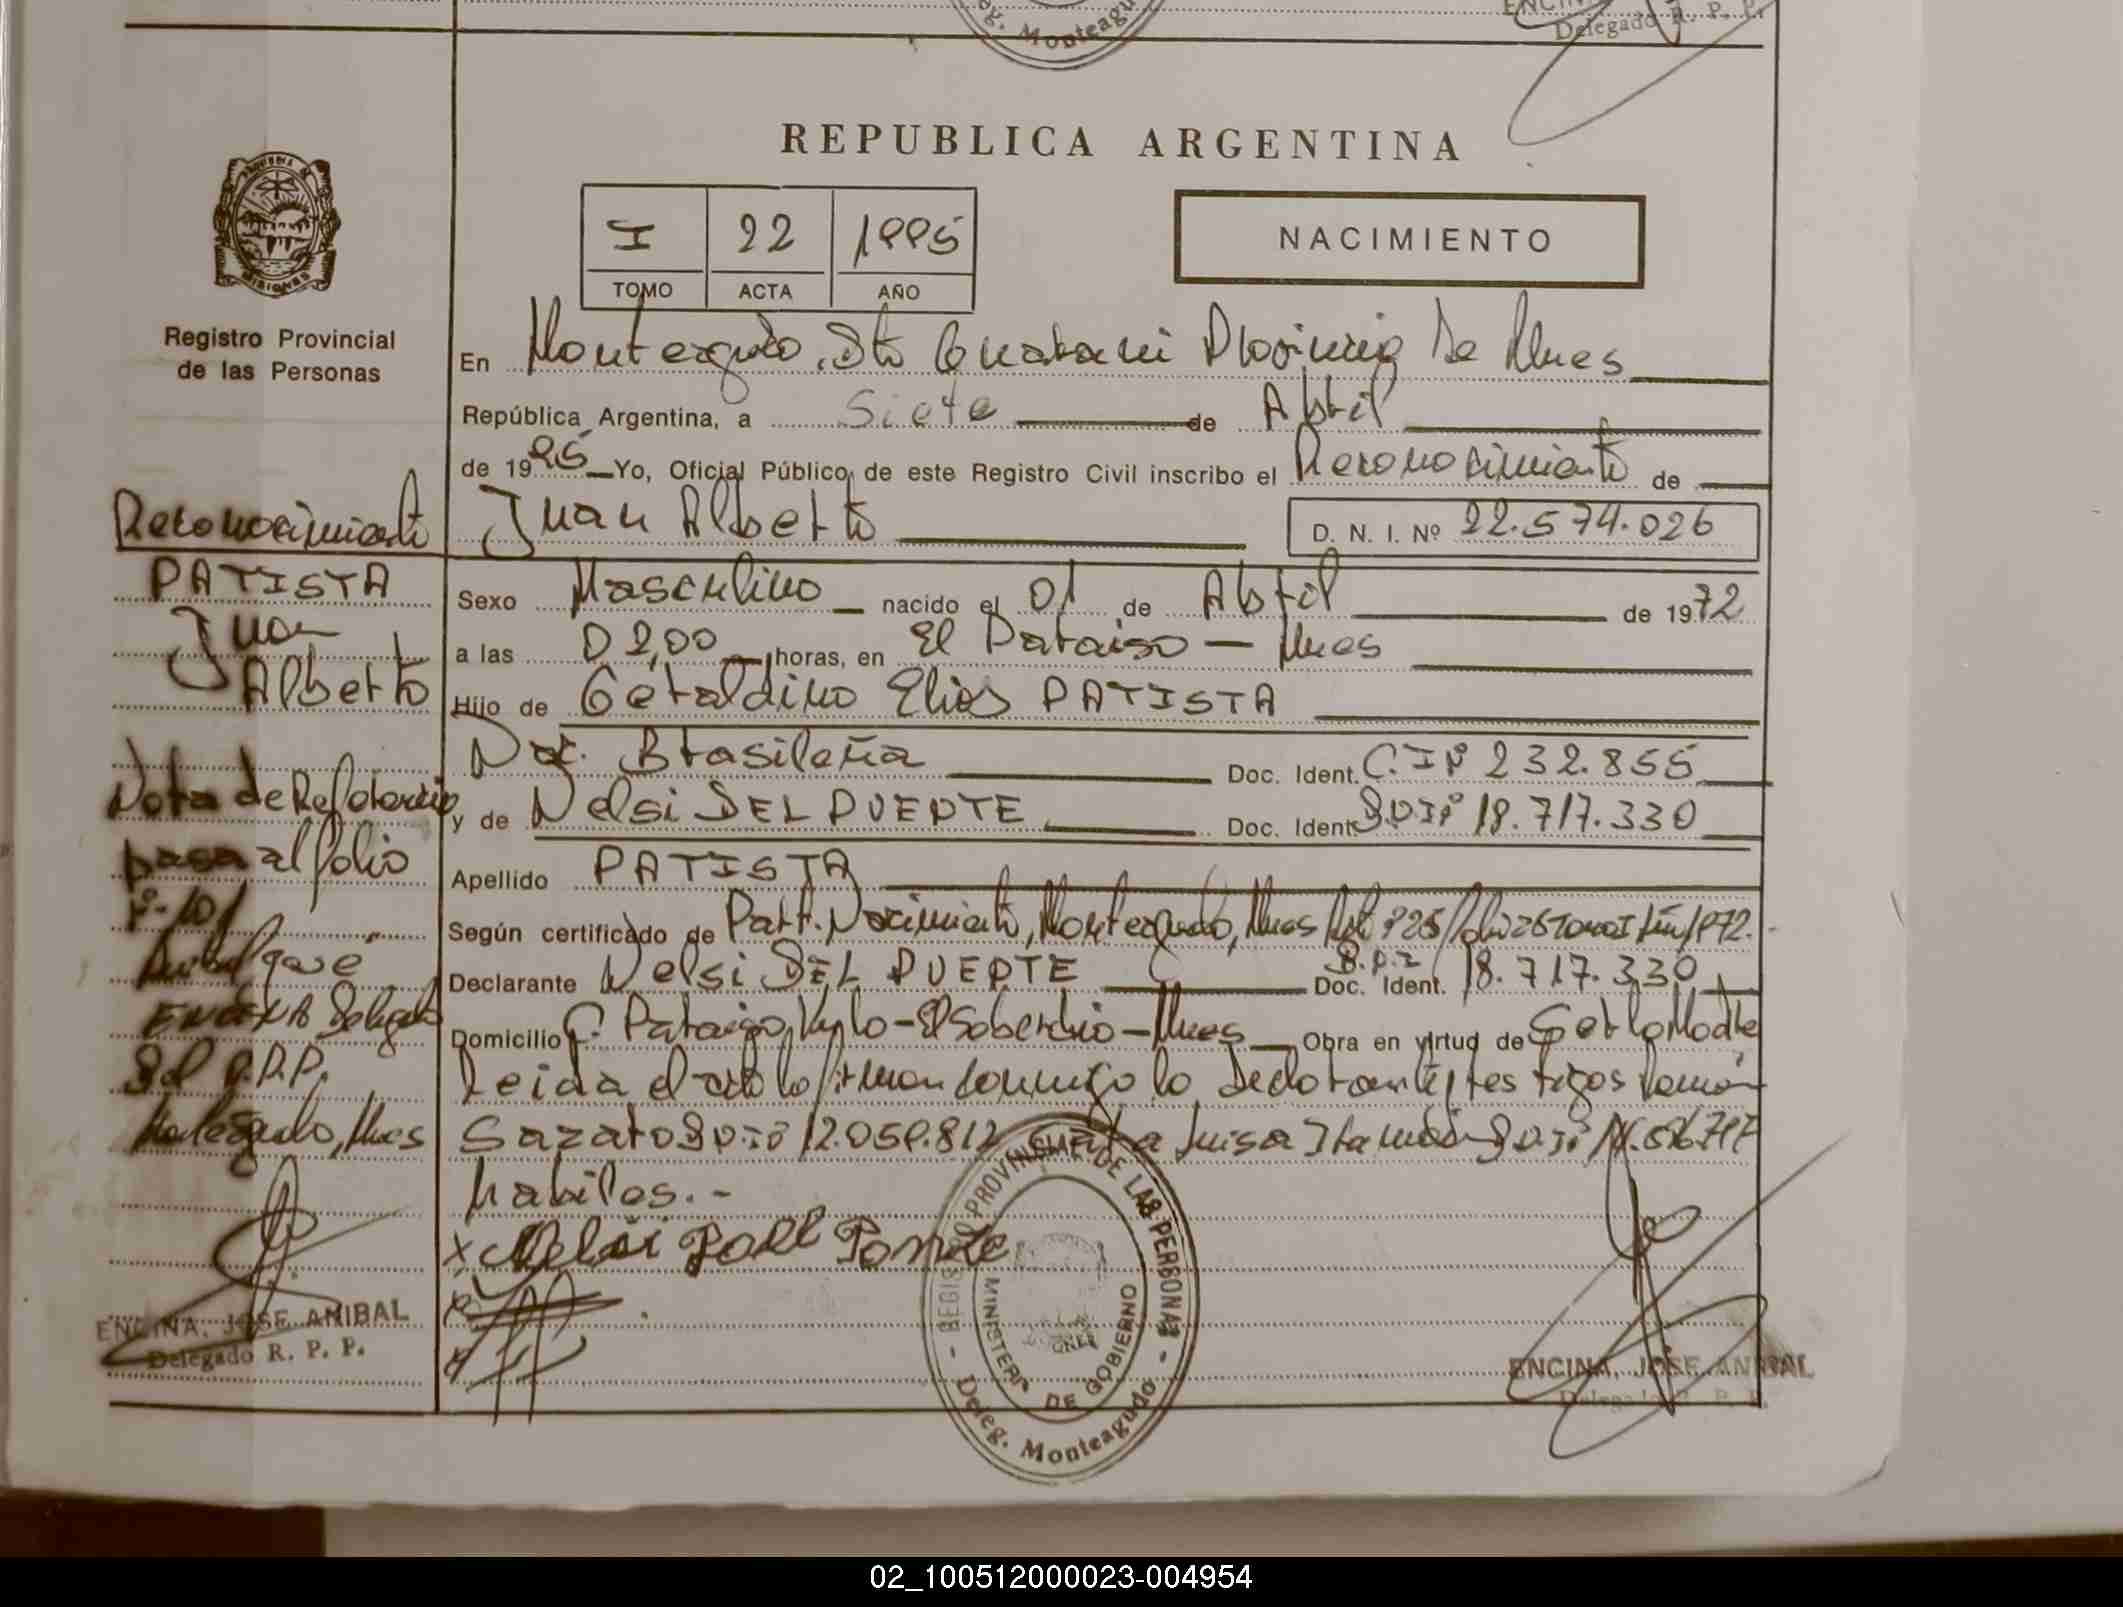 Deleg. Monteagu
ENCIN
Delegado R. P. P.
REPUBLICA ARGENTINA
I 22 1995
TOMO ACTA AÑO
NACIMIENTO
MISIONES
Registro Provincial
de las Personas
En Monteagudo, Dto Guarani Provincia De Mnes
República Argentina, a Siete de Abril
de 1995 Yo, Oficial Público de este Registro Civil inscribo el Reconocimiento de
Juan Alberto D. N. I. Nº 22.574.026
Sexo Masculino nacido el 01 de Abril de 1972
a las 02,00 horas, en El Paraiso - Mnes
Hijo de Geraldino Elias PATISTA
Nac. Brasileña Doc. Ident. C.I Nº 232.855
y de Nelsi DEL PUERTE Doc. Ident. D.N.I Nº 18.717.330
Apellido PATISTA
Según certificado de Part. Nacimiento, Monteagudo, Mnes
Declarante Nelsi DEL PUERTE Doc. Ident. D.N.I 18.717.330
Domicilio C. Paraiso, El Soberbio - Mnes Obra en virtud de Ser la Madre
Leida el acta la firman conmigo la Declarante y testigos Ramón
Sazaro D.N.I Nº 12.059.812 Luisa D.N.I Nº
habiles.-
Reconocimiento
PATISTA
Juan
Alberto
Nota de Referencia
pasa al folio
Nº-101
ENCINA Delegado
Del R.P.P.
Monteagudo, Mnes
ENCINA, JOSE ANIBAL
Delegado R. P. P.
x Nelsi
REGISTRO PROVINCIAL DE LAS PERSONAS
MINISTERIO DE GOBIERNO
Deleg. Monteagudo
ENCINA, JOSE ANIBAL
Delegado R. P. P.
02_100512000023-004954